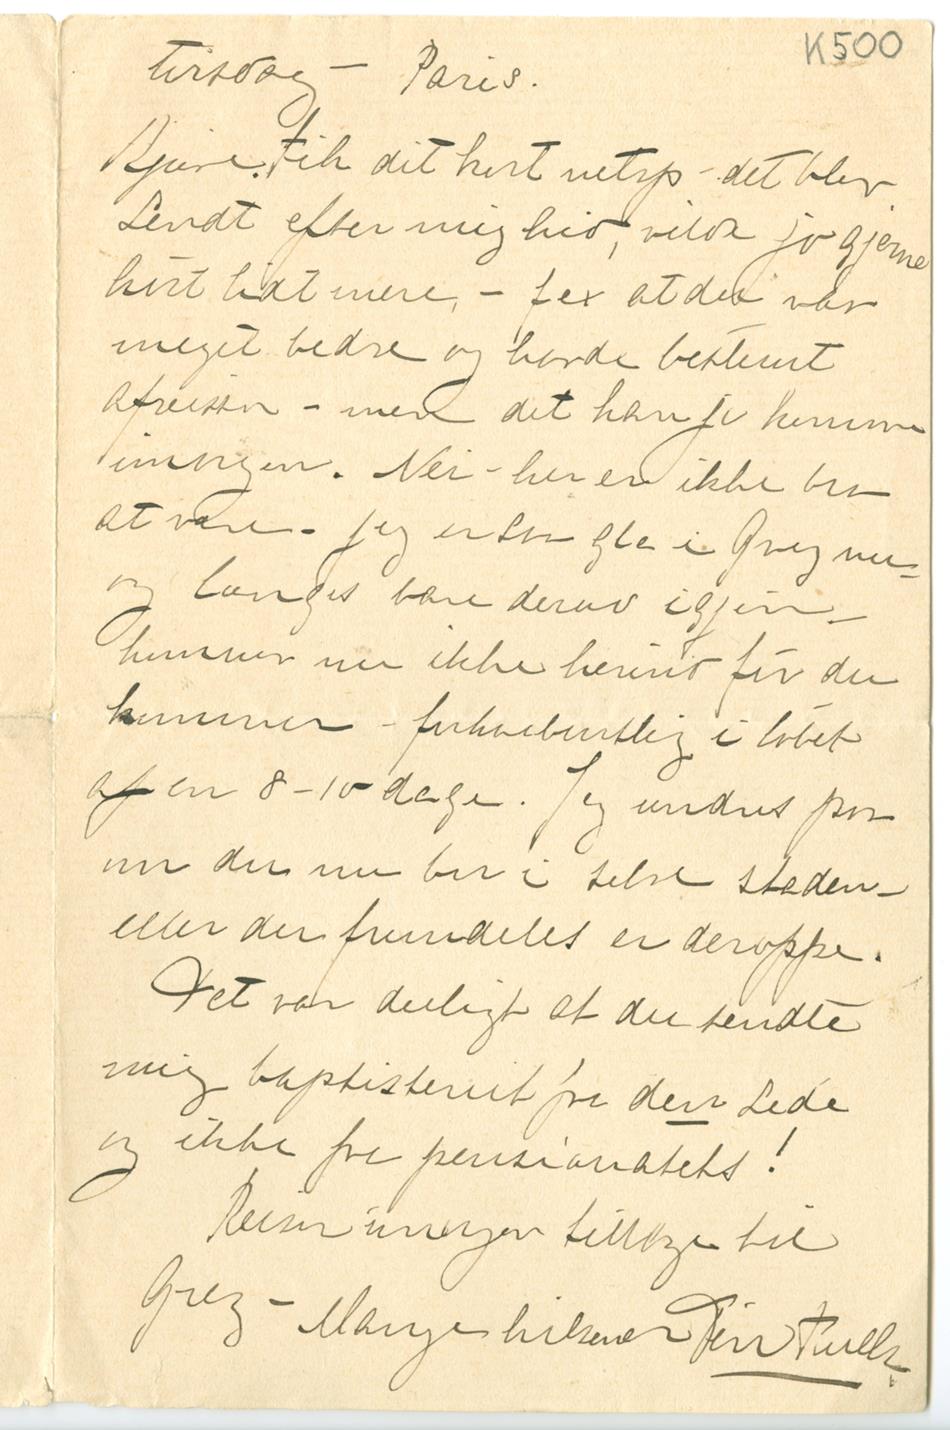 K500
tirsdag – Paris.
Kjære. Fik dit kort netop – det blev
sendt efter mig hid, vilde jo gjerne
hørt lidt mere, – f ex at du var
meget bedre og havde bestemt
afreisen – men det kan jo komme
imorgen. Nei – her er ikke bra
at være – jeg er saa gla i Grez nu –
og længes bare derud igjen –
kommer nu ikke herind før du
kommer – forhaabentlig i løbet
af en 8–10 dage. Jeg undres paa
om du nu bor i selve staden –
eller du fremdeles er deroppe.
Det var deiligt at du sendte
mig baptisteriet fra den side
og ikke fra pensionatets!
Reiser imorgen tillage til
Grez – Mange hilsener Din